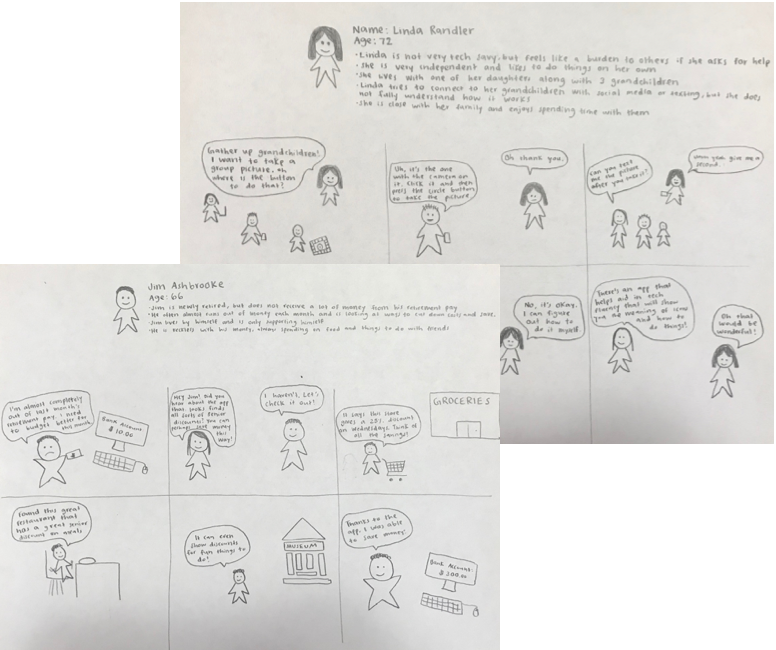 Name: Linda Randler
Age: 72
· Linda is not very tech savy, but feels like a burden to others if she asks for help
· She is very independent and likes to do things on her own
· She lives with one of her daughters along with 3 grandchildren
· Linda tries to connect to her grandchildren with social media or texting, but she does
not fully understand how it works
· She is close with her family and enjoys spending time with them
Gather up grandchildren!
I want to take a
group picture, oh
where is the button
to do that?
Uh, it's the one
with the camera on
it. Click it and then
press the circle button
to take the picture
Oh thank you.
Can you text
me the picture
after you take it?
umm yeah give me a
second.
No, it's okay.
I can figure
out how to
do it myself.
There's an app that
helps aid in tech
fluency that will show
you meaning of icons
and how to
do things!
Oh that
would be
wonderful!
Jim Ashbrooke
Age: 66
· Jim is newly retired, but does not receive a lot of money from his retirement pay
· He often almost runs out of money each month and is looking at ways to cut down costs and save.
· Jim lives by himself and is only supporting himself
· He is reckless with his money, always spending on food and things to do with friends
I'm almost completely
out of last month's
retirement pay. I need
to budget better
this month.
Bank Account
$10.00
Hey Jim! Did you
hear about the app
that looks finds
all sorts of senior
discounts! You can
perhaps save money
this way!
I haven't. Let's
check it out!
It says this store
gives a 25% discount
on Wednesdays. Think of
all the savings!
GROCERIES
Found this great
restaurant that
has a great senior
discount on meals
It can even
show discounts
for fun things to
do!
MUSEUM
Thanks to the
app, I was able
to save money.
Bank Account:
$300.00